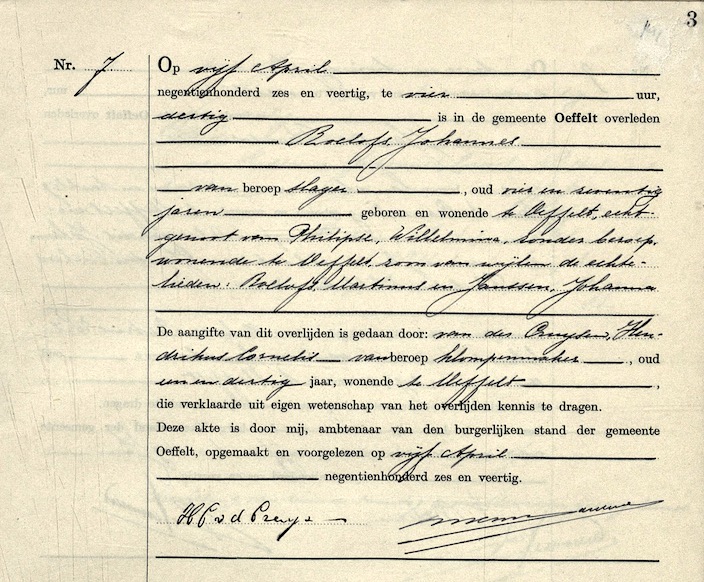 3
Nr. 7 Op vijf April
negentienhonderd zes en veertig, te vier uur,
dertig is in de gemeente Oeffelt overleden
Roelofs Johannes
van beroep slager, oud vier en zeventig
jaren geboren en wonende te Oeffelt, echt-
genoot van Philipse, Wilhelmina, zonder beroep,
wonende te Oeffelt, zoon van wijlen de echte-
lieden: Roelofs, Martinus en Janssen, Johanna
De aangifte van dit overlijden is gedaan door: van der Cruijsen, Hen-
drikus Cornelis van beroep klompenmaker, oud
een en dertig jaar, wonende te Oeffelt,
die verklaarde uit eigen wetenschap van het overlijden kennis te dragen.
Deze akte is door mij, ambtenaar van den burgerlijken stand der gemeente
Oeffelt, opgemaakt en voorgelezen op vijf April
negentienhonderd zes en veertig.
H C v d